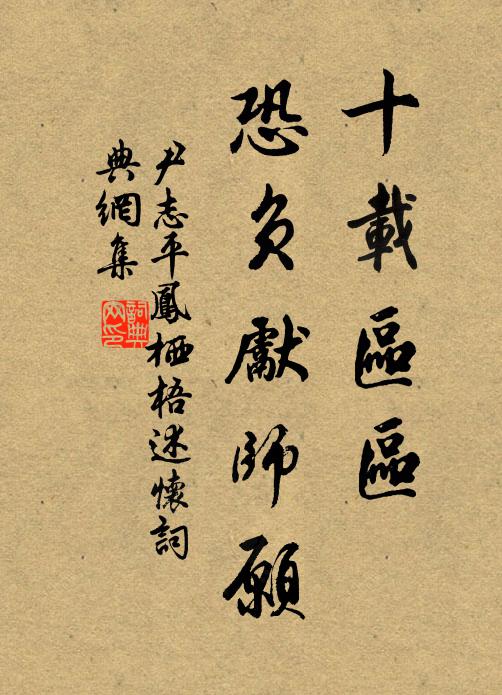 十載區區
恐負獻師願
尹志平鳳栖梧述懷詞
典網集
詞典網印